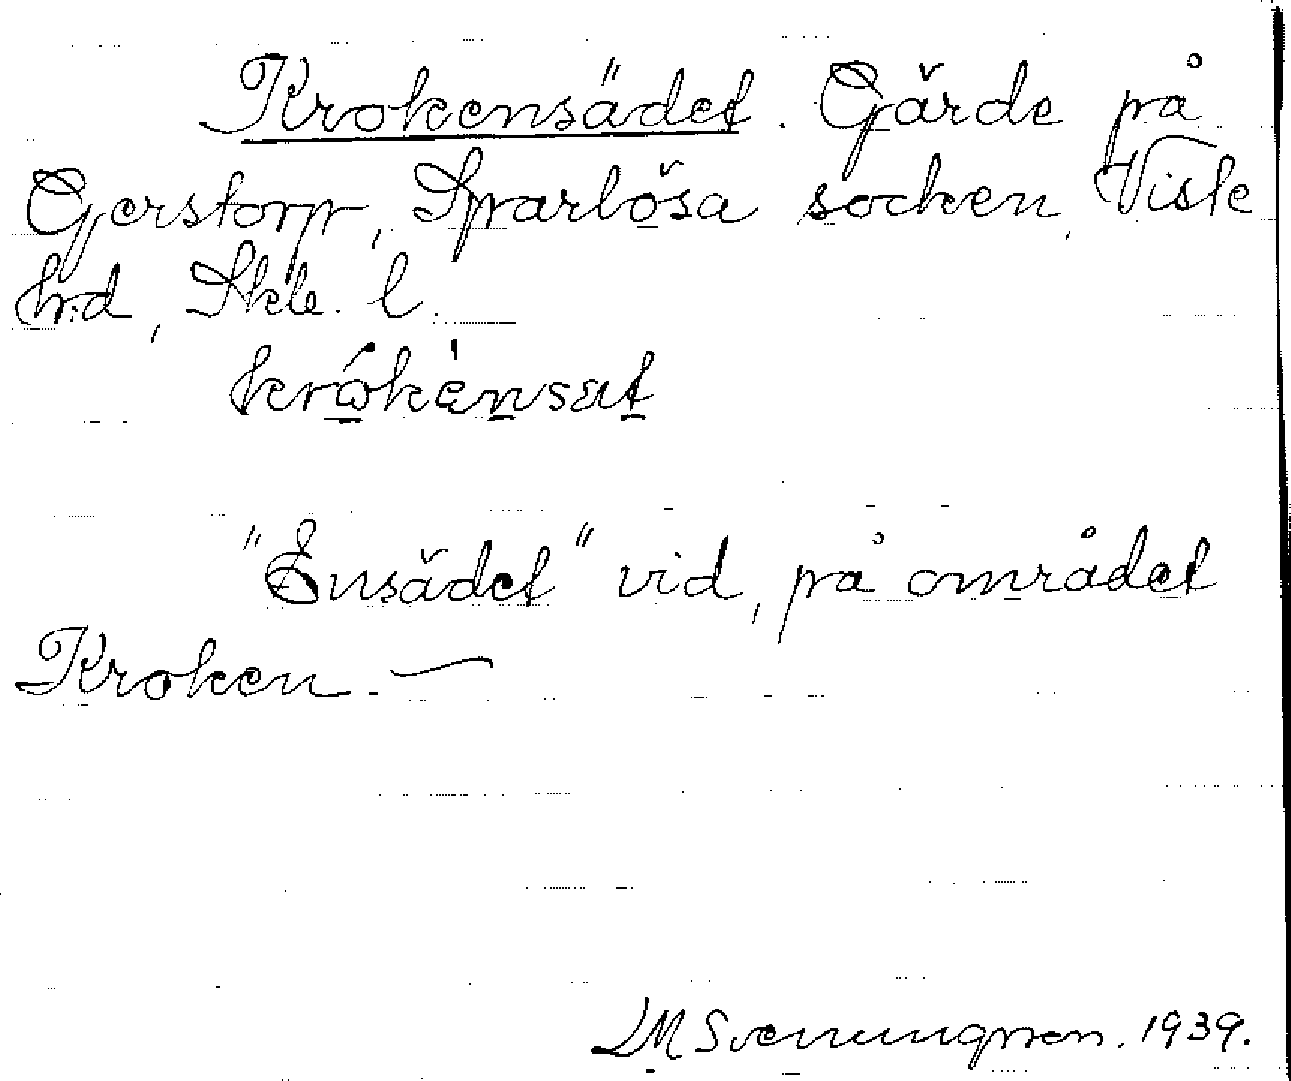 Krokensädet. Gärde på
Gerstorp, Sparlösa socken, Viste
hd, Skbs. l.
krókènsæt
"Ensädet" vid, på området
Kroken. —
LM Svenungsson. 1939.